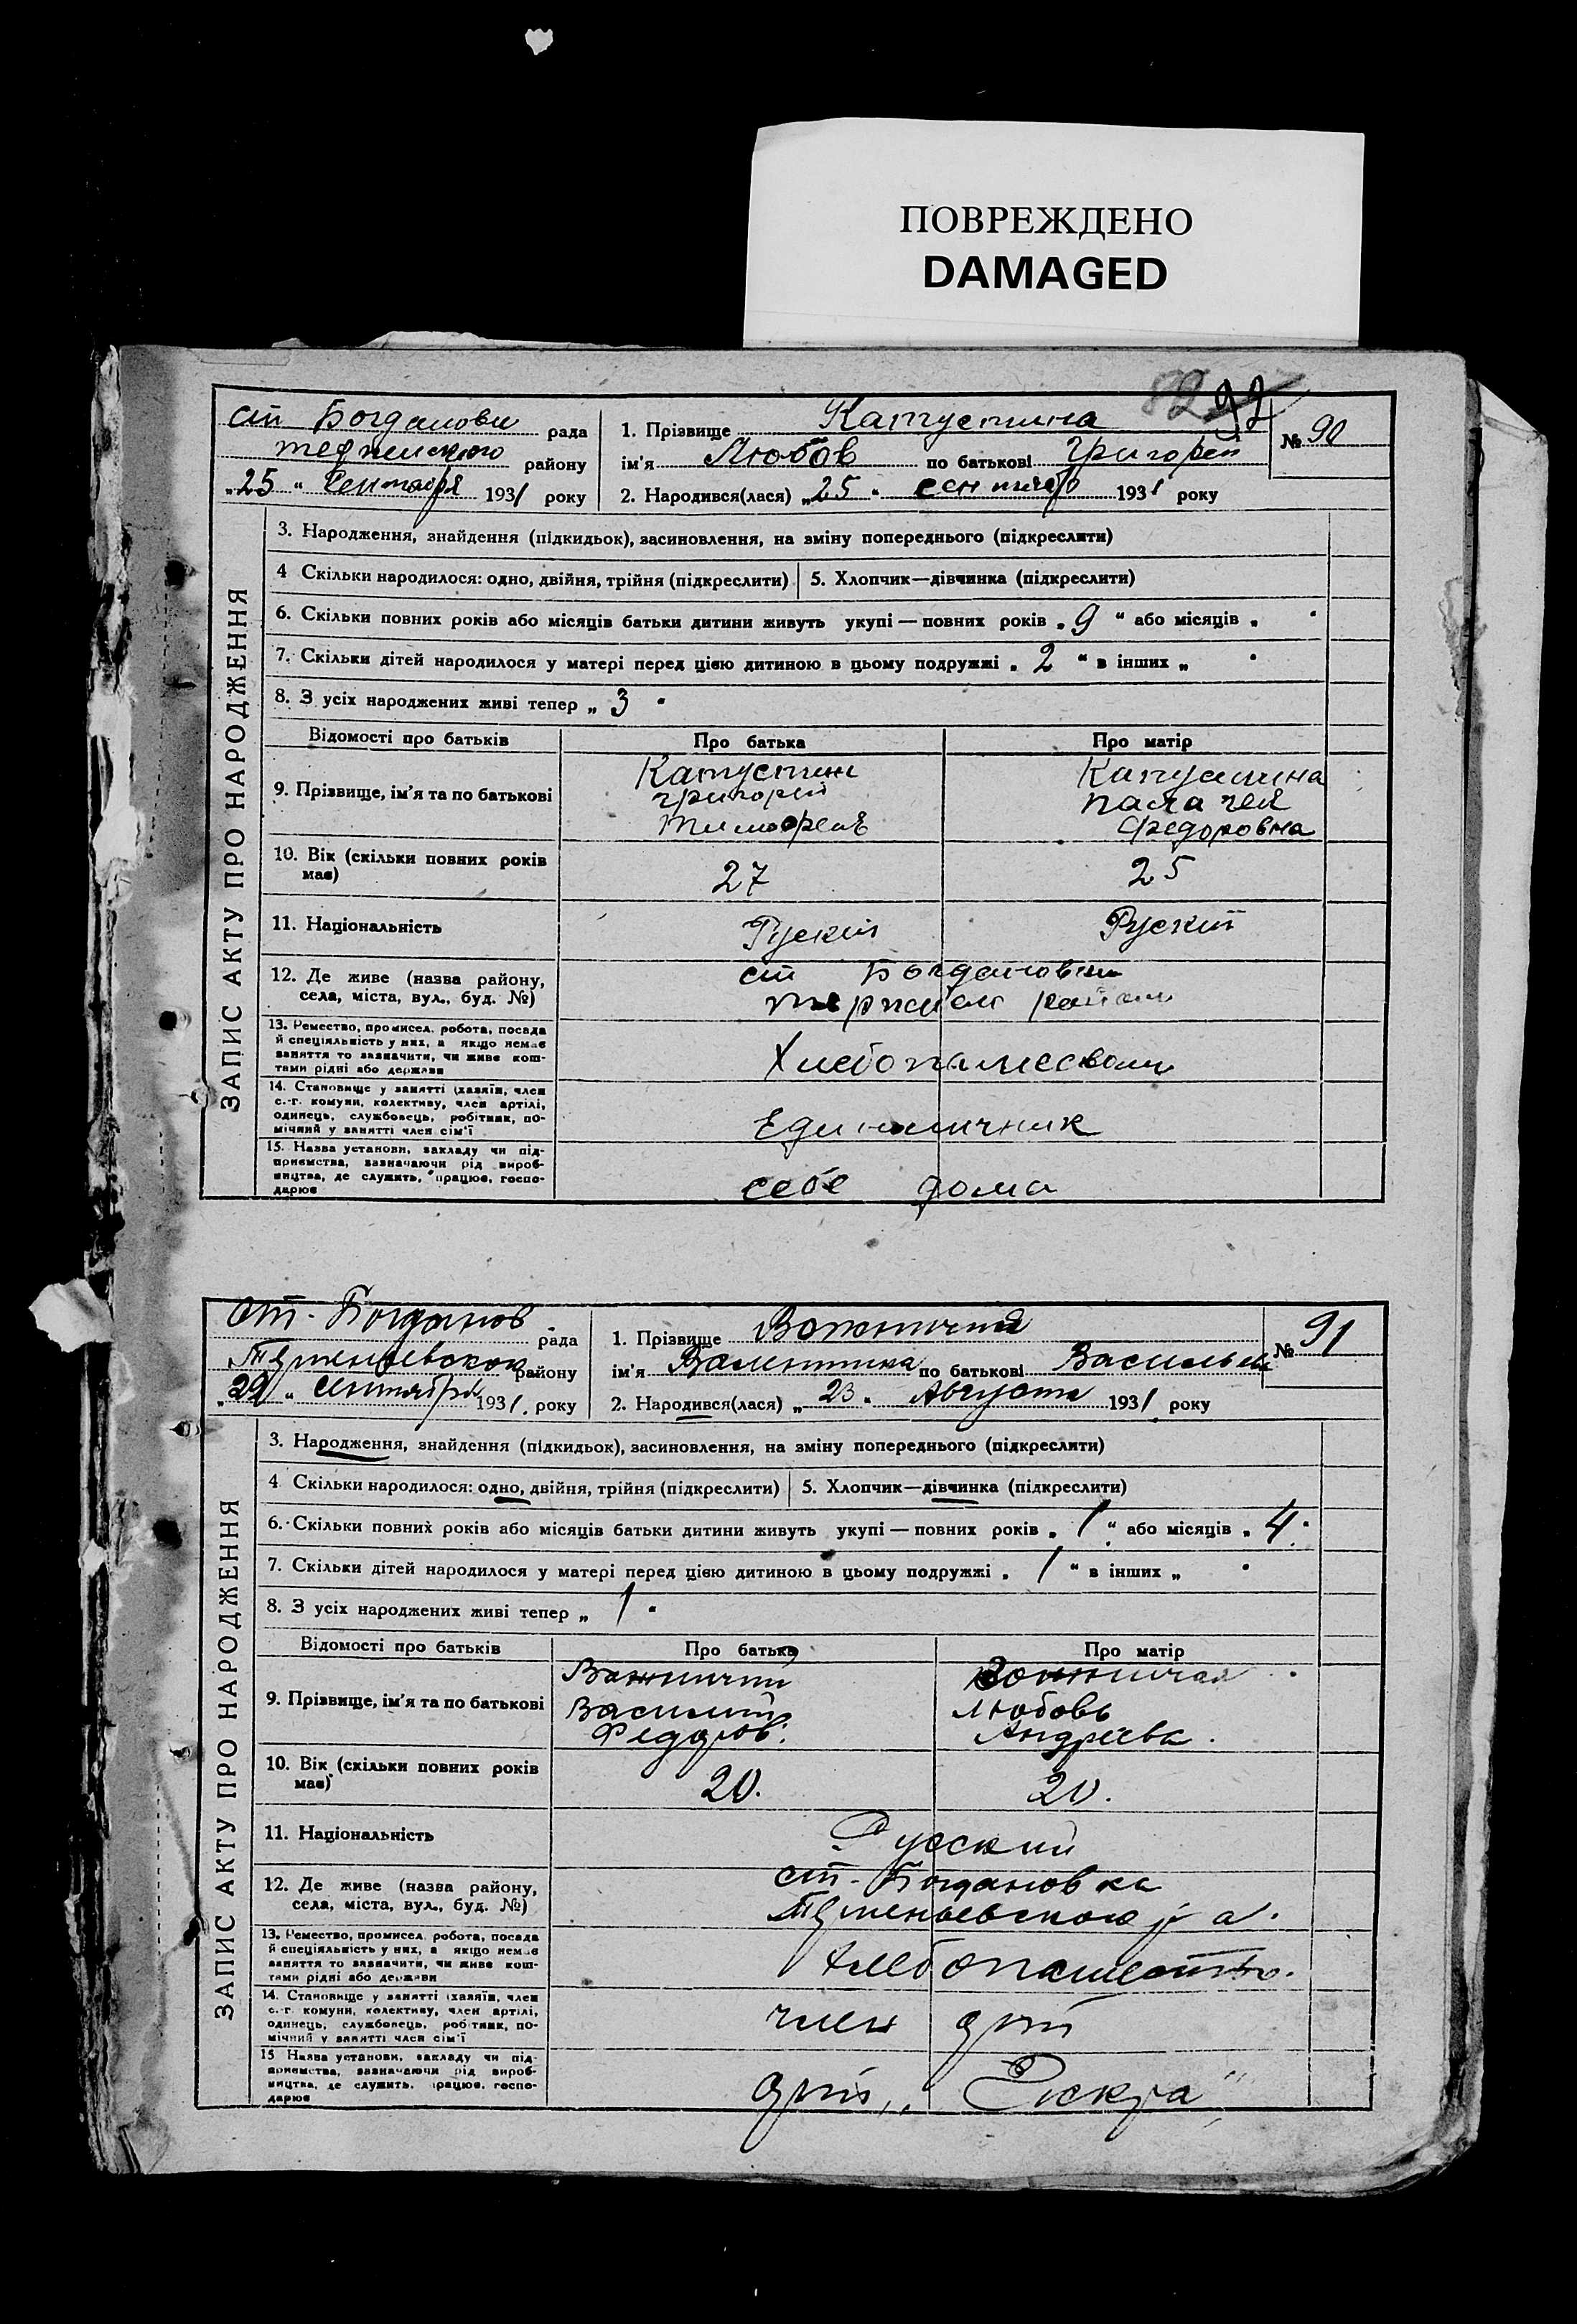 ПОВРЕЖДЕНО
DAMAGED
82 92
ст Богданови рада
району
„25“ Сентября 1931 року
1. Прізвище Капустина
ім'я Любов по батькові Григорей
2. Народився(лася) „25“ сентябр 1931 року
№ 90
ЗАПИС АКТУ ПРО НАРОДЖЕННЯ
3. Народження, знайдення (підкидьок), засиновлення, на зміну попереднього (підкреслити)
4 Скільки народилося: одно, двійня, трійня (підкреслити) 5. Хлопчик—дівчинка (підкреслити)
6. Скільки повних років або місяців батьки дитини живуть укупі — повних років „9“ або місяців „
7. Скільки дітей народилося у матері перед цією дитиною в цьому подружжі „2“ в інших „
8. З усіх народжених живі тепер „3
Відомості про батьків Про батька Про матір
9. Прізвище, ім'я та по батькові
Капустин
Григорей
Тимофеев
Капустина
Палагея
Федоровна
10. Вік (скільки повних років
має)
27 25
11. Національність Руский Руский
12. Де живе (назва району,
села, міста, вул., буд. №)
ст Богдановки
13. Ремество, промисел, робота, посада
й спеціяльність у них, а якщо немає
заняття то зазначити, чи живе кош-
тами рідні або держави
14. Становище у занятті (хазяїн, член
с.-г. комуни, колективу, член артілі,
одинець, службовець, робітник, по-
мічний у занятті член сім'ї
Единаличник
15. Назва установи, закладу чи під-
приємства, зазначаючи рід вироб-
ництва, де служить, працює, госпо-
дарює
себе дома
ст. Богданов рада
району
„29“ Сентября 1931. року
1. Прізвище
ім'я Валентина по батькові Васильев
2. Народився(лася) „23“ Августа 1931 року
№ 91
ЗАПИС АКТУ ПРО НАРОДЖЕННЯ
3. Народження, знайдення (підкидьок), засиновлення, на зміну попереднього (підкреслити)
4 Скільки народилося: одно, двійня, трійня (підкреслити) 5. Хлопчик—дівчинка (підкреслити)
6. Скільки повних років або місяців батьки дитини живуть укупі — повних років „1“ або місяців „4.
7. Скільки дітей народилося у матері перед цією дитиною в цьому подружжі „1“ в інших „
8. З усіх народжених живі тепер „1
Відомості про батьків Про батька Про матір
9. Прізвище, ім'я та по батькові
Василий
Федоров.
Любовь
Андреевa.
10. Вік (скільки повних років
має)
20. 20.
11. Національність Русский
12. Де живе (назва району,
села, міста, вул., буд. №)
ст. Богдановка
13. Ремество, промисел, робота, посада
й спеціяльність у них, а якщо немає
заняття то зазначити, чи живе кош-
тами рідні або держави
Хлебопашество.
14. Становище у занятті (хазяїн, член
с.-г. комуни, колективу, член артілі,
одинець, службовець, робітник, по-
мічний у занятті член сім'ї
член арт
15 Назва установи, закладу чи під-
приємства, зазначаючи рід вироб-
ництва, де служить, працює, госпо-
дарює
арт. „Искра“